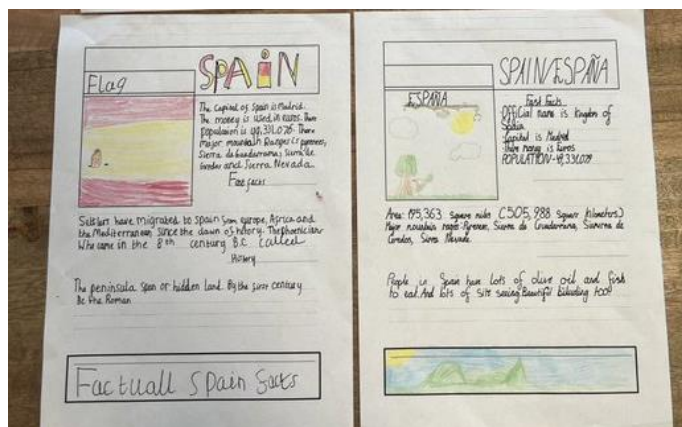 Flag
SPAIN
The capital of Spain is Madrid.
The money is used in euros. Their
population is 49,331,076. There
major mountain Ranges is pyrenees,
Sierra de Guadarrama, Sierra de
Gredos and Sierra Nevada.
Fast facts
Settlers have migrated to Spain from europe, Africa and
the Mediterranean since the dawn of history. The phoenicians
Who came in the 8th century B.C called
History
The peninsula Span or hidden Land. By the first century
Be the Roman
Factuall Spain facts
SPAIN/ESPAÑA
ESPAÑA
Fast Facts
Official name is kingdom of
Spain
Capital is Madrid
There money is Euros
POPULATION-49,331,076
Area: 195,363 square miles (505,988 square kilometers)
Major mountain Pyrenees, Sierra de Guadarrama,
Gredos, Nevada.
People in Spain have lots of olive oil and fish
to eat. And lots of site seeing. Beautiful too!